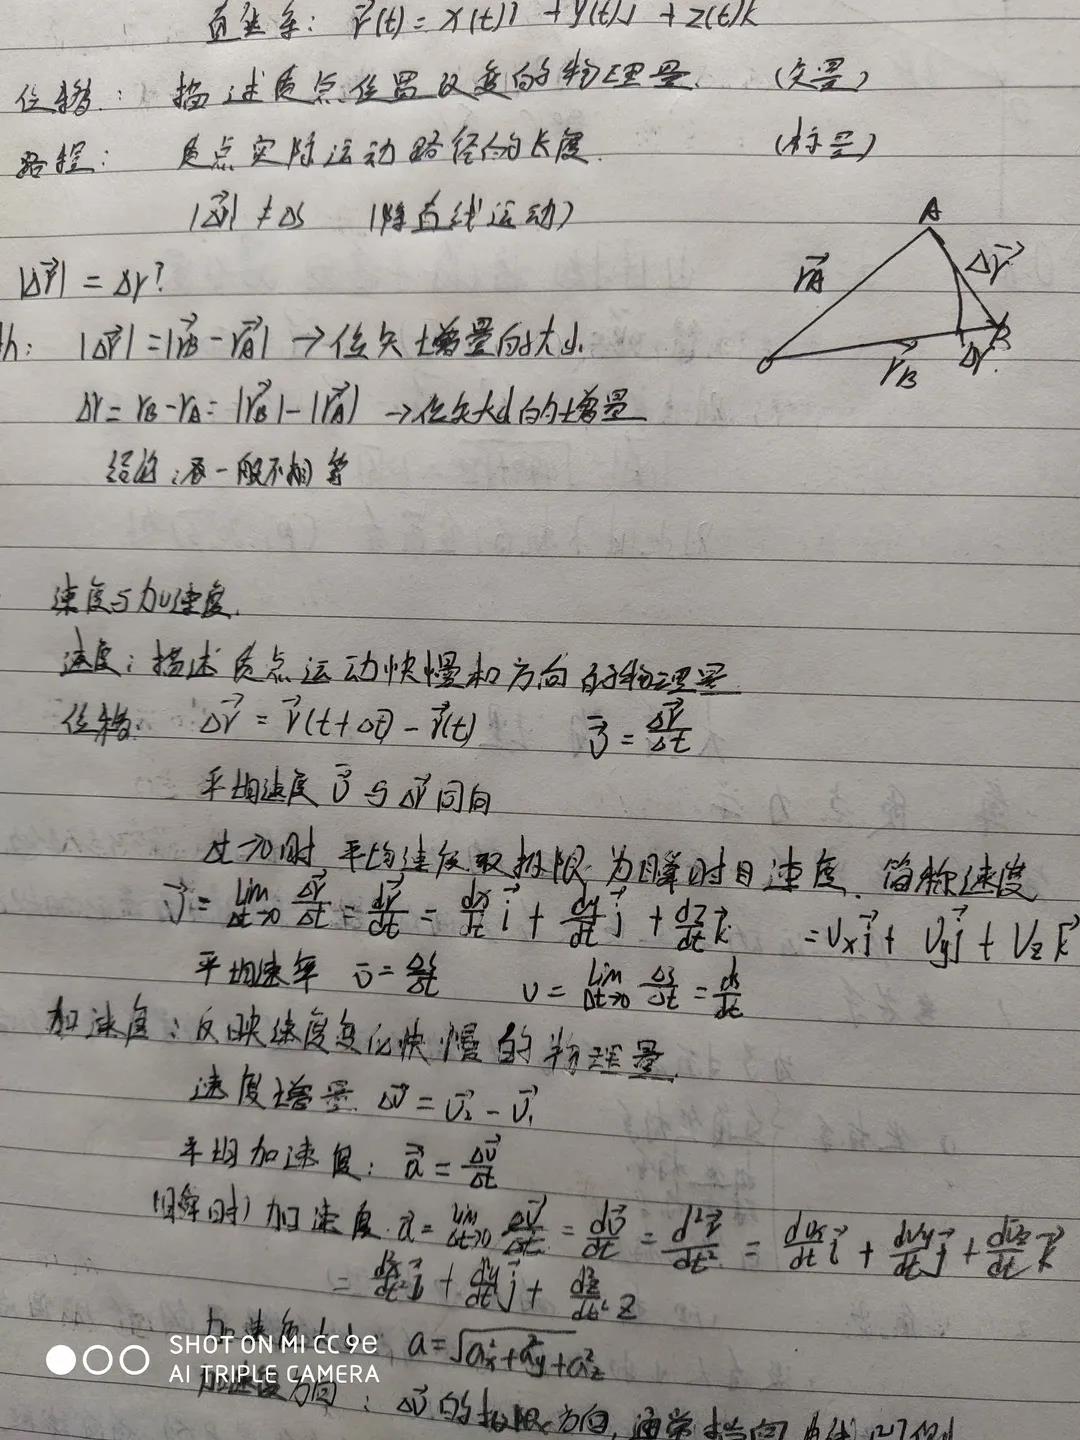 直坐系: r⃗(t) = x(t)i⃗ + y(t)j⃗ + z(t)k⃗
位移: 描述质点位置改变的物理量. (矢量)
路程: 质点实际运动路径的长度. (标量)
|Δr⃗| ≠ Δs (除直线运动)
|Δr⃗| = Δr?
|Δr⃗| = |r⃗B - r⃗A| → 位矢增量的大小
Δr = rB - rA = |r⃗B| - |r⃗A| → 位矢大小的增量
结论: 一般不相等
A
r⃗A
Δr⃗
O
r⃗B
Δr
B
速度与加速度.
速度: 描述质点运动快慢和方向的物理量
位移: Δr⃗ = r⃗(t+Δt) - r⃗(t) v̄⃗ = Δr⃗/Δt
平均速度 v̄⃗ 与 Δr⃗ 同向
Δt→0时 平均速度取极限 为瞬时速度. 简称速度
v⃗ = lim Δt→0 Δr⃗/Δt = dr⃗/dt = dx/dt i⃗ + dy/dt j⃗ + dz/dt k⃗ = Vx i⃗ + Vy j⃗ + Vz k⃗
平均速率 v̄ = Δs/Δt v = lim Δt→0 Δs/Δt = ds/dt
加速度: 反映速度变化快慢的物理量.
速度增量 Δv⃗ = v⃗2 - v⃗1
平均加速度: a⃗ = Δv⃗/Δt
(瞬时)加速度 a⃗ = lim Δt→0 Δv⃗/Δt = dv⃗/dt = d²r⃗/dt² = dvx/dt i⃗ + dvy/dt j⃗ + dvz/dt k⃗
= d²x/dt² i⃗ + d²y/dt² j⃗ + d²z/dt² z
加速度大小: a = √(ax² + ay² + az²)
加速度方向: Δv⃗ 的极限方向, 通常指向曲线凹侧
SHOT ON MI CC 9e
AI TRIPLE CAMERA